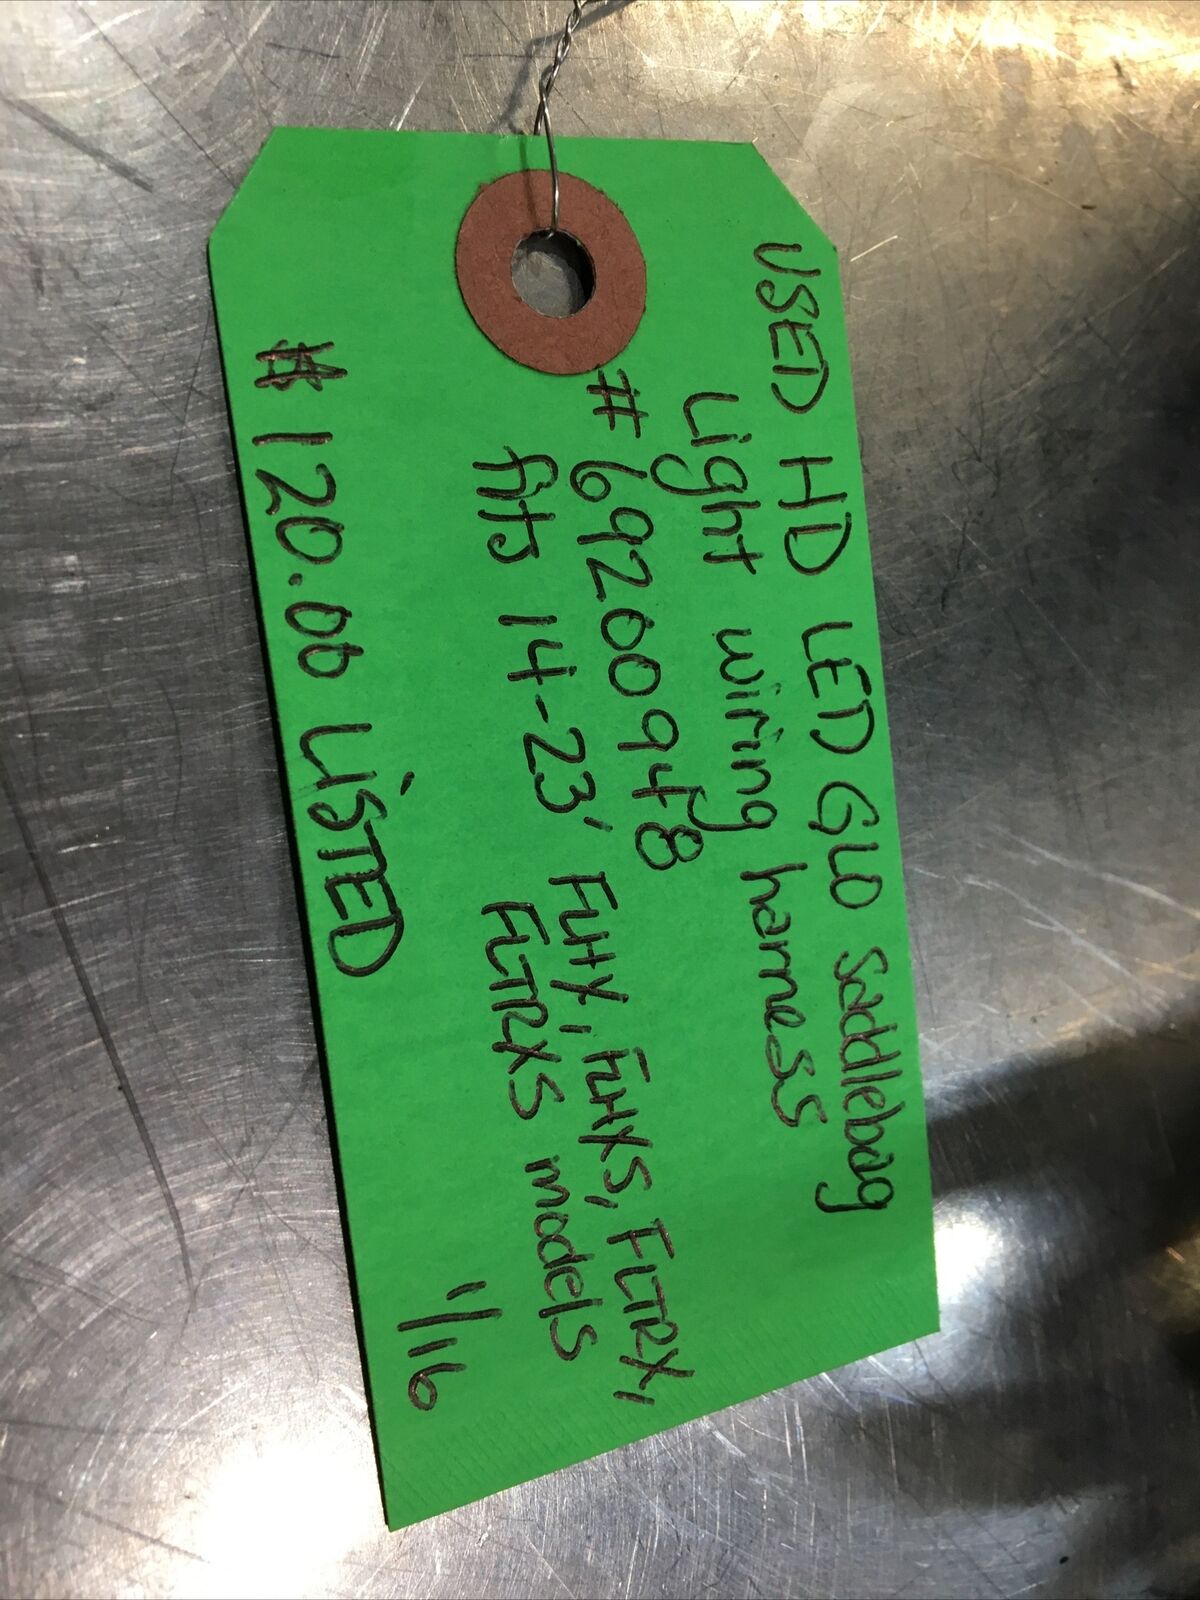 USED HD LED GLO saddlebag
Light wiring harness
# 69200948
fits 14-23' FLHX, FLHXS, FLTRX,
FLTRXS models
$120.00 LiSTED
1/16